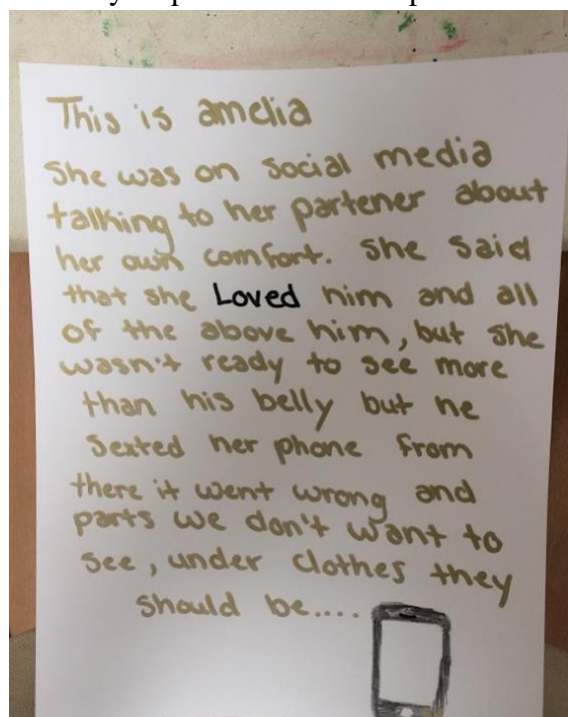 This is amelia
She was on social media
talking to her partener about
her own comfort. She said
that she Loved him and all
of the above him, but she
wasn't ready to see more
than his belly but he
Sexted her phone from
there it went wrong and
parts we don't want to
see, under clothes they
should be....